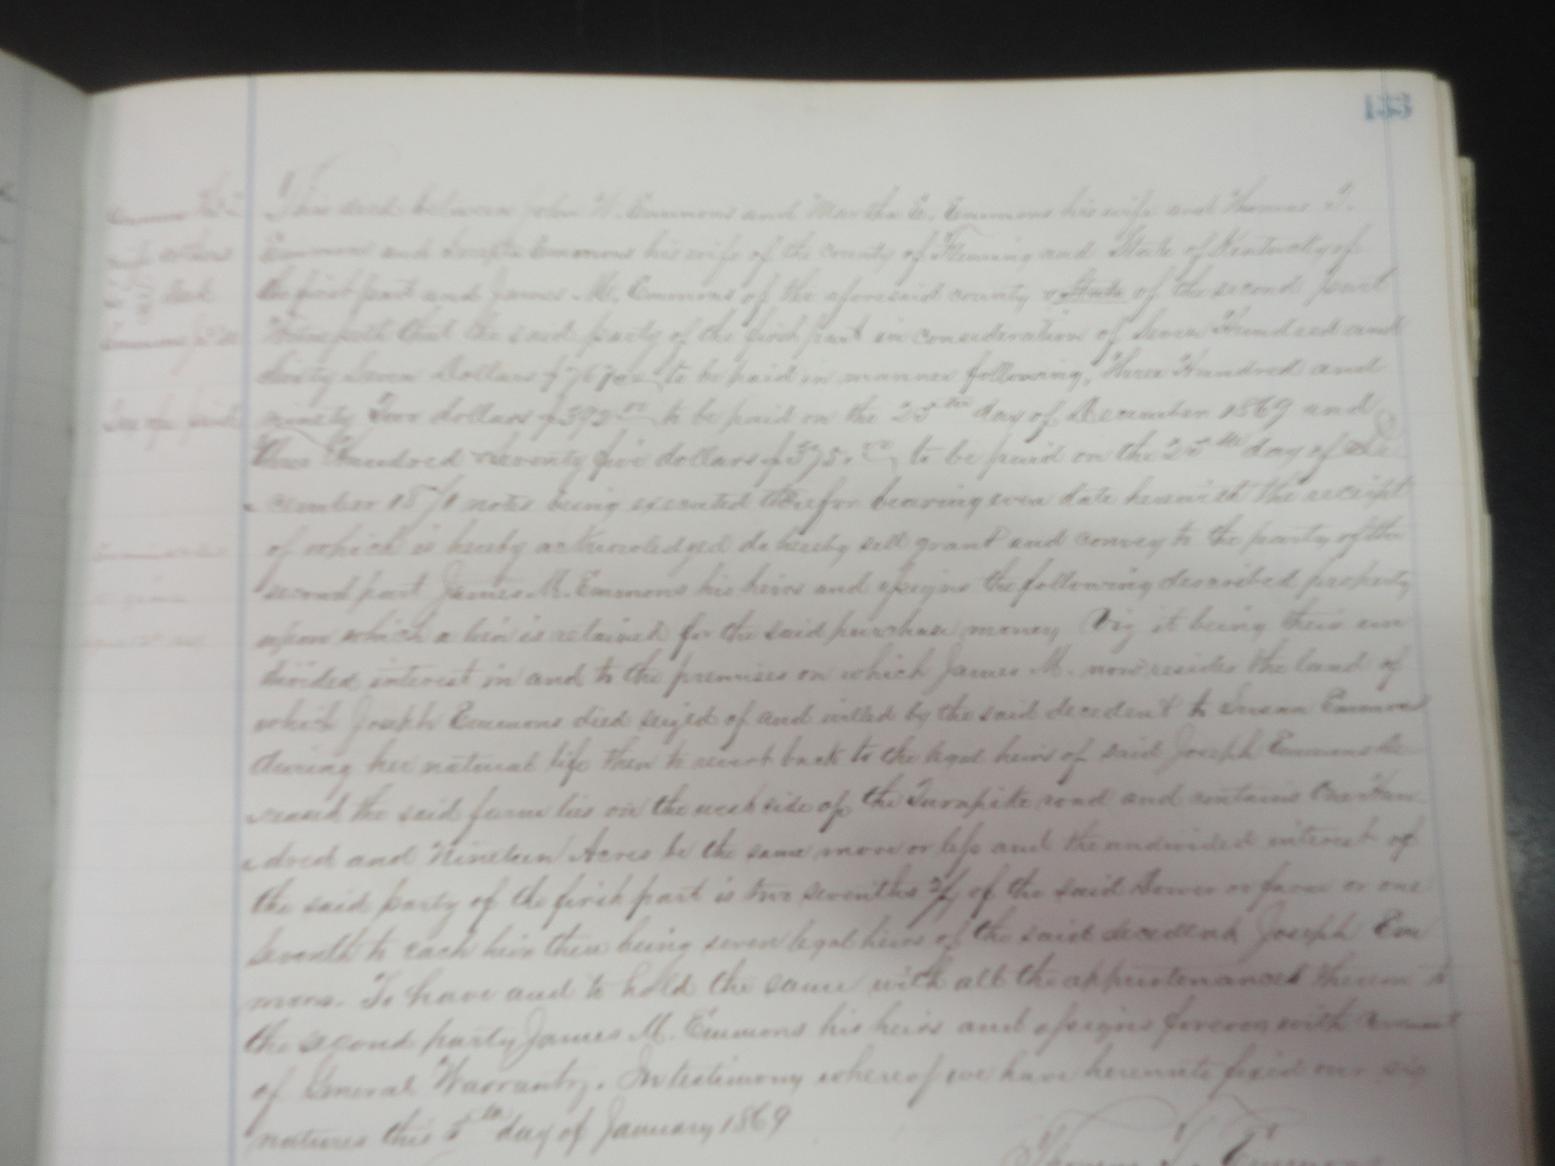 133
This deed between John W. Emmons and Martha E. Emmons his wife and Thomas T.
Emmons and Emmons his wife of the county of Fleming and State of Kentucky of
the first part and James M. Emmons of the aforesaid county & State of the second part
Witnesseth that the said party of the first part in consideration of Seven Hundred and
Sixty Seven Dollars $767 to be paid in manner following, Three Hundred and
ninety Two dollars $392 to be paid on the 25th day of December 1869 and
Three Hundred & seventy five dollars $375. to be paid on the 25th day of De
cember 1870 notes being executed therefor bearing even date herewith the receipt
of which is hereby acknowledged do hereby sell grant and convey to the party of the
second part James M. Emmons his heirs and assigns the following described property
upon which a lien is retained for the said purchase money Viz it being their un
divided interest in and to the premises on which James M. now resides the land of
which Joseph Emmons died seized of and willed by the said decedent to Susan Emmons
during her natural life then to revert back to the legal heirs of said Joseph Emmons de
ceased the said farm lies on the west side of the Turnpike road and contains One Hun
dred and Nineteen Acres be the same more or less and the undivided interest of
the said party of the first part is two sevenths 2/7 of the said Dower or farm or one
seventh to each heir there being seven legal heirs of the said decedent Joseph Em
mons. To have and to hold the same with all the appurtenances thereon to
the second party James M. Emmons his heirs and assigns forever with covenant
of General Warranty. In testimony whereof we have hereunto fixed our sig
natures this 5th day of January 1869
Thomas T. Emmons